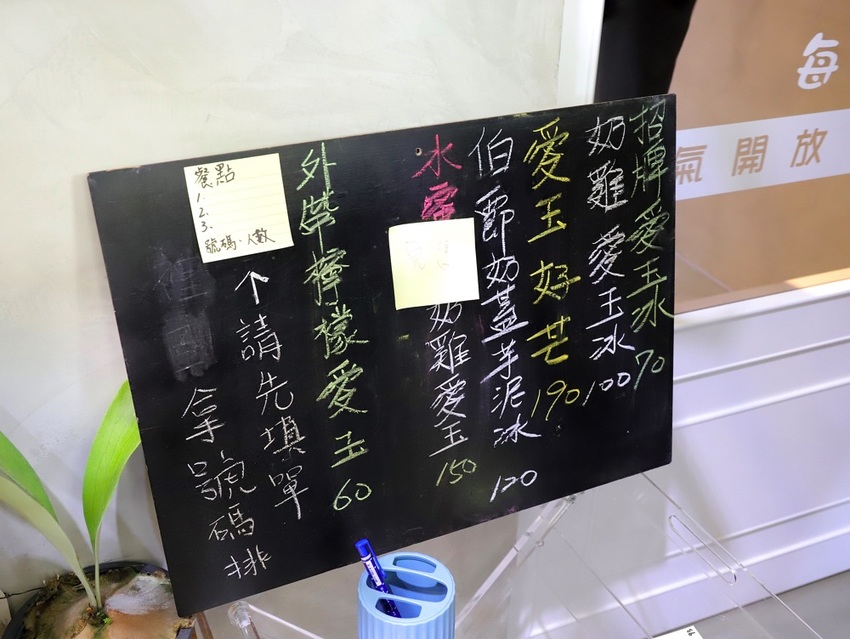 招牌愛玉冰 70
奶雞愛玉冰 100
愛玉好芒 190
伯爵奶蓋芋泥冰 120
水蜜
奶雞愛玉 150
外帶檸檬愛玉 60
↑請先填單
拿號碼排
餐點
1.
2.
3.
號碼.人數
每
氣開放